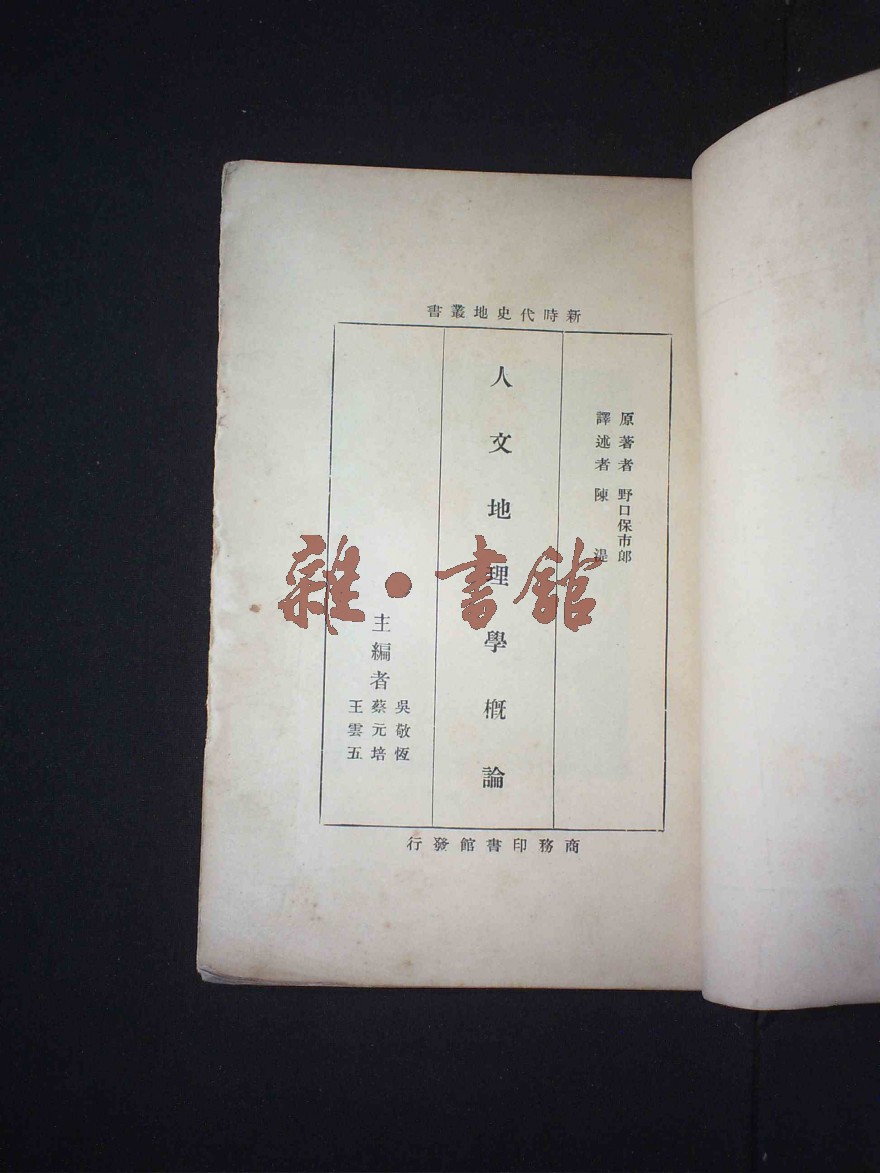 新時代史地叢書
原著者 野口保市郎
譯述者 陳湜
人文地理學概論
主編者
吳敬恆
蔡元培
王雲五
商務印書館發行
雜·書館